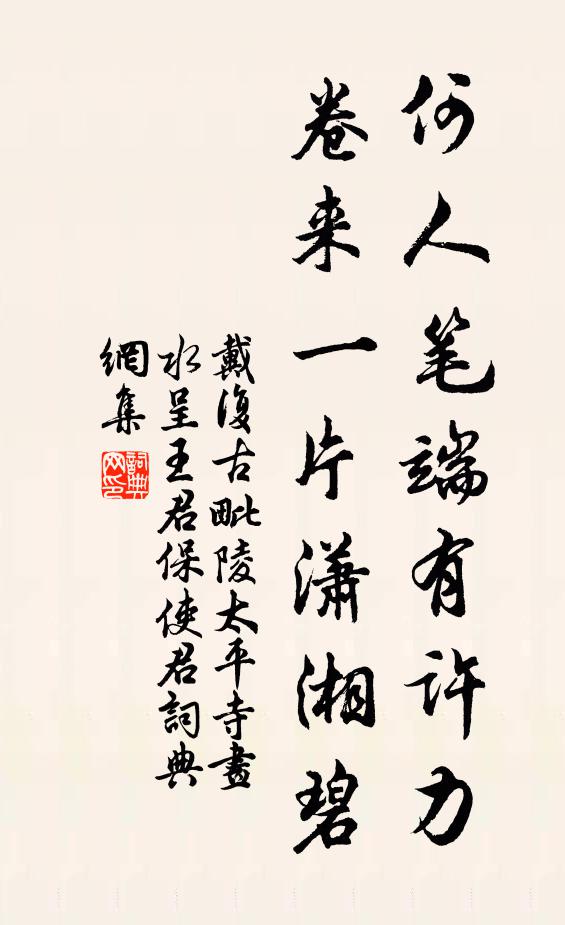 何人笔端有许力
卷来一片潇湘碧
戴復古毗陵太平寺畫
水呈王君保使君詞典
網集
詞典
网印